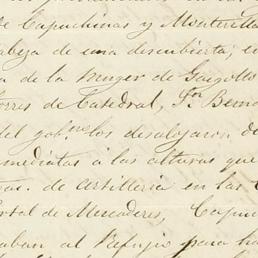 de Capuchinas y Monterilla
cabeza de una descubierta; en
a de la muger de Gargollo
Torres de Catedral, Sn. Berna
del gobno. los desalojaron de
mediatas a las alturas que
zas. de artilleria en las
Portal de Mercaderes, Capuc
aban al Refugio para ha